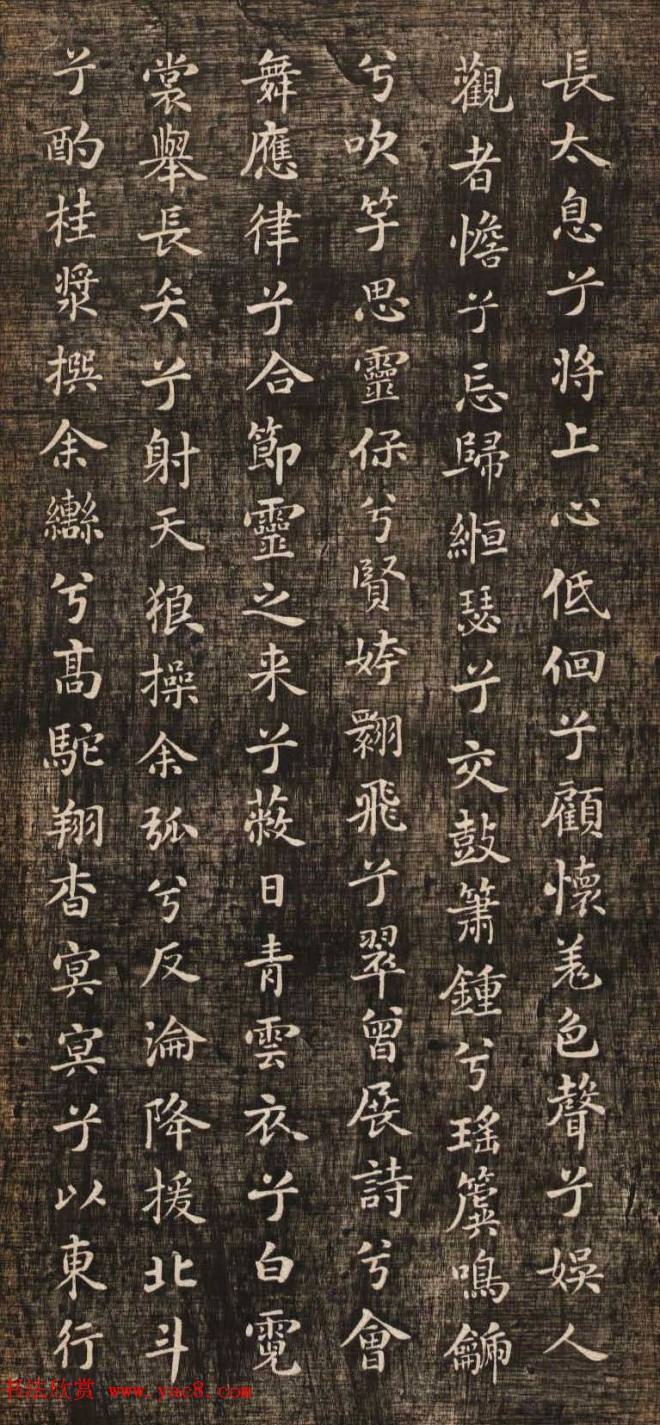 長太息兮將上心低佪兮顧懷羌色聲兮娛人
觀者憺兮忘歸縆瑟兮交鼓簫鍾兮瑤簴鳴鷈
兮吹竽思靈保兮賢姱翾飛兮翠曾展詩兮會
舞應律兮合節靈之来兮蔽日青雲衣兮白霓
裳舉長矢兮射天狼操余弧兮反淪降援北斗
兮酌桂漿撰余轡兮高駝翔杳冥冥兮以東行
书法欣赏 www.yac8.com